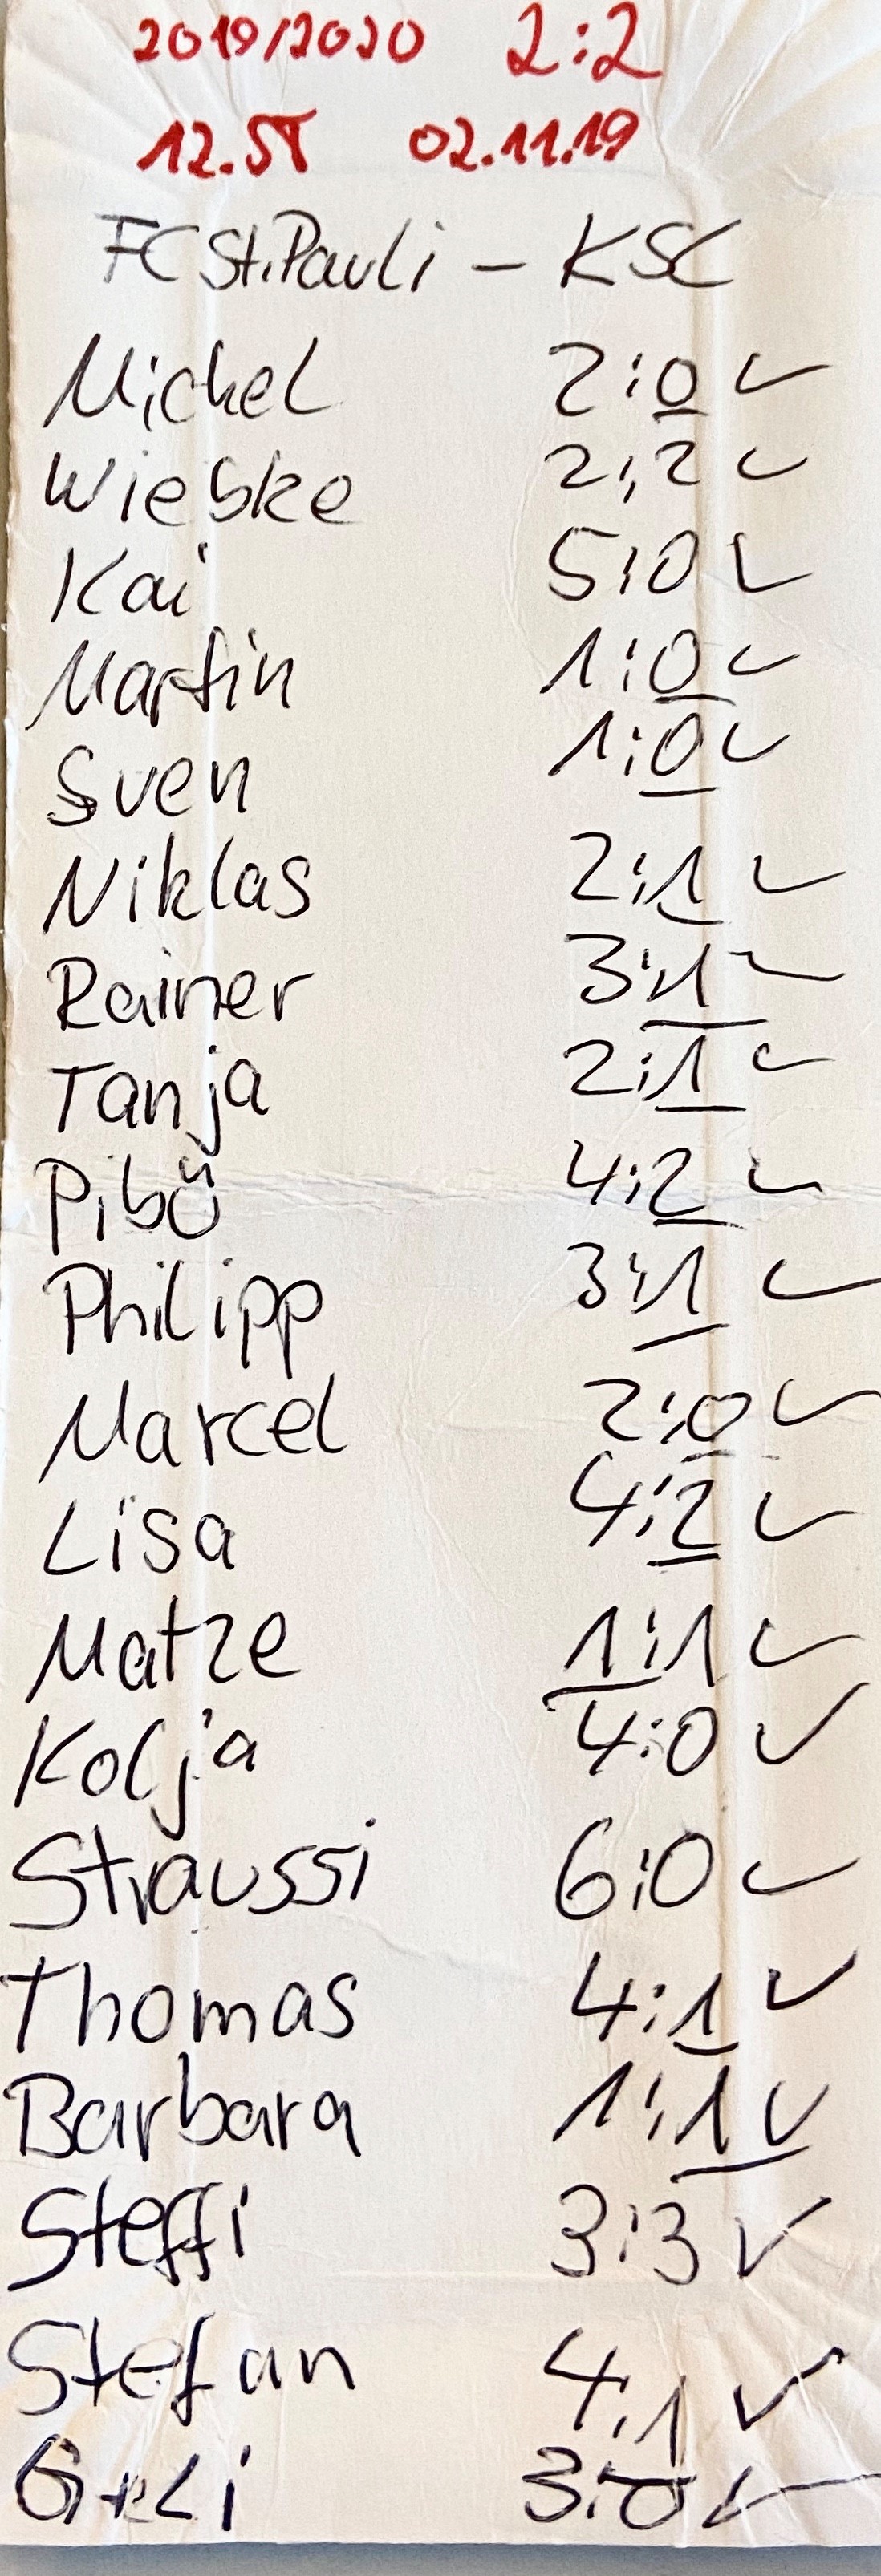 2019/2020 2:2
12.ST 02.11.19
FC St. Pauli - KSC
Michel 2:0 ✓
Wiebke 2:2 ✓
Kai 5:0 ✓
Martin 1:0 ✓
Sven 1:0 ✓
Niklas 2:1 ✓
Rainer 3:1 ✓
Tanja 2:1 ✓
Pibö 4:2 ✓
Philipp 3:1 ✓
Marcel 2:0 ✓
Lisa 4:2 ✓
Matze 1:1 ✓
Kolja 4:0 ✓
Straussi 6:0 ✓
Thomas 4:1 ✓
Barbara 1:1 ✓
Steffi 3:3 ✓
Stefan 4:1 ✓
Geli 3:0 ✓